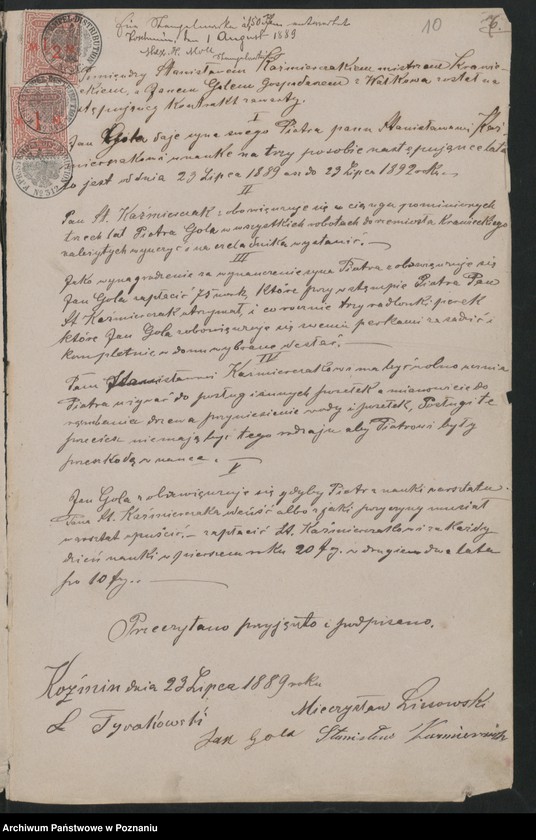 10
6.
1 August 1889
2
M 1 M
Pomiędzy Stanisławem Kaźmierczakiem mistrzem Krawie-
ckiem a Janem Golem Gospodarzem z Wałkowa został na
stępujący kontrakt zawarty.
I
Jan Gola daje syna swego Piotra panu Stanisławowi Kaź-
mierczakowi w naukę na trzy po sobie następujące lata
to jest od dnia 23 Lipca 1889 aż do 23 Lipca 1892 roku.
II
Pan St. Kaźmierczak zobowięzuje się w ciągu pomienionych
trzech lat Piotra Gola w wszystkich robotach do rzemiosła Krawieckiego
należytych wyuczyć i na czeladnika wystawić.
III
Jako wynagrodzenie za wyuczenie syna Piotra zobowięzuje się
Jan Gola zapłacić 75 marek, które przy wstąpie Piotra Pan
St. Kaźmierczak otrzymał, i corocznie trzy radlonki perek
które Jan Gola zobowięzuje się swemi perkami zasadzić i
kompletnie w domu wybrane dostać.
IV
Panu Stanisławowi Kaźmierczakowi ma być wolno ucznia
Piotra używać do posług i innych posyłek a mianowicie do
rąbania drzewa przyniesienia wody i posyłek, Posługi te
przecież nie mają być tego rodzaju aby Piotrowi były
przeszkodą w nauce.
V
Jan Gola zobowięzuje się gdyby Piotr z nauki warsztatu
Pana St. Kaźmierczaka uciekł albo z jakiej przyczyny musiał
warsztat opuścić, zapłacić St. Kaźmierczakowi za każdy
dzień nauki w pierwszem roku 20 fg. w drugiem dwa lata
po 10 fg.
Przeczytano przyjęto i podpisano.
Koźmin dnia 23 Lipca 1889 roku
Mieczysław Lissowski
L Tyrakowski
Jan Gola Stanisław Kazmierczak
Archiwum Państwowe w Poznaniu